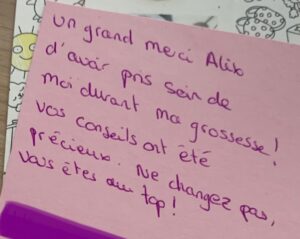 un grand merci Alix
d'avoir pris soin de
moi durant ma grossesse !
vos conseils ont été
précieux. Ne changez pas,
vous êtes au top !